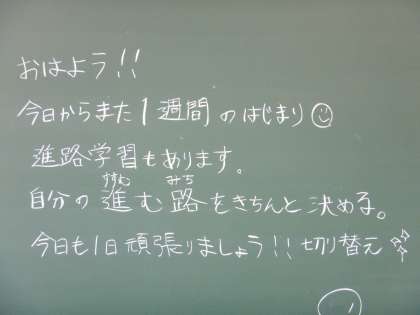 おはよう!!
今日からまた1週間のはじまり☺
進路学習もあります。
すすむ みち
自分の進む路をきちんと決める。
今日も1日頑張りましょう!!切り替え